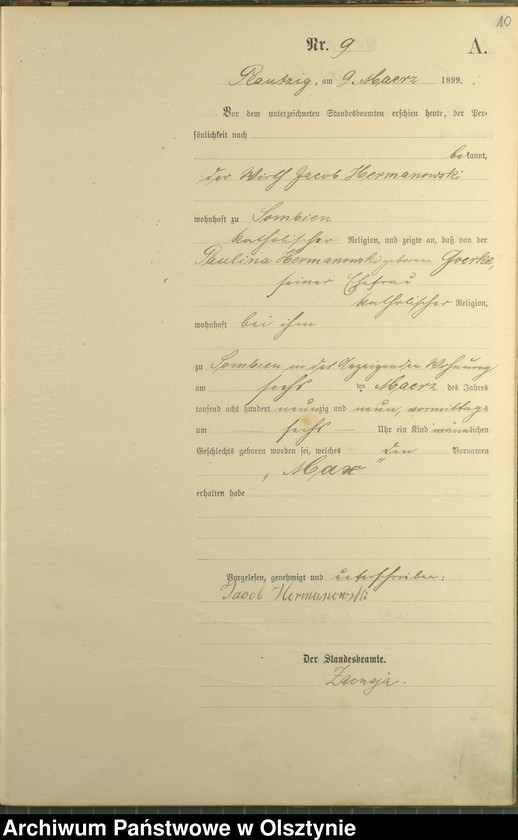 10
Nr. 9 A.
Plautzig, am 9. Maerz 1899.
Vor dem unterzeichneten Standesbeamten erschien heute, der Per-
sönlichkeit nach
bekannt,
der Wirth Jacob Hermanowski
wohnhaft zu Sombien
katholischer Religion, und zeigte an, daß von der
Paulina Hermanowski geborenen Goerke,
seiner Ehefrau
katholischer Religion,
wohnhaft bei ihm
zu Sombien in des Anzeigenden Wohnung
am sechs ten Maerz des Jahres
tausend acht hundert neunzig und neun, vormittags
um sechs Uhr ein Kind männlichen
Geschlechts geboren worden sei, welches den Vornamen
„Max"
erhalten habe
Vorgelesen, genehmigt und unterschrieben:
Jacob Hermanowski
Der Standesbeamte.
Archiwum Państwowe w Olsztynie